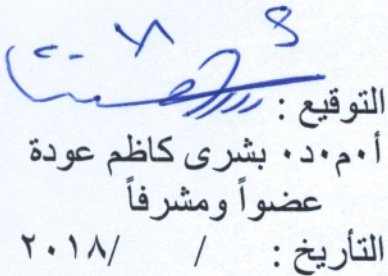 التوقيع :
أ٠م٠د٠ بشرى كاظم عودة
عضواً ومشرفاً
التأريخ : / /٢٠١٨